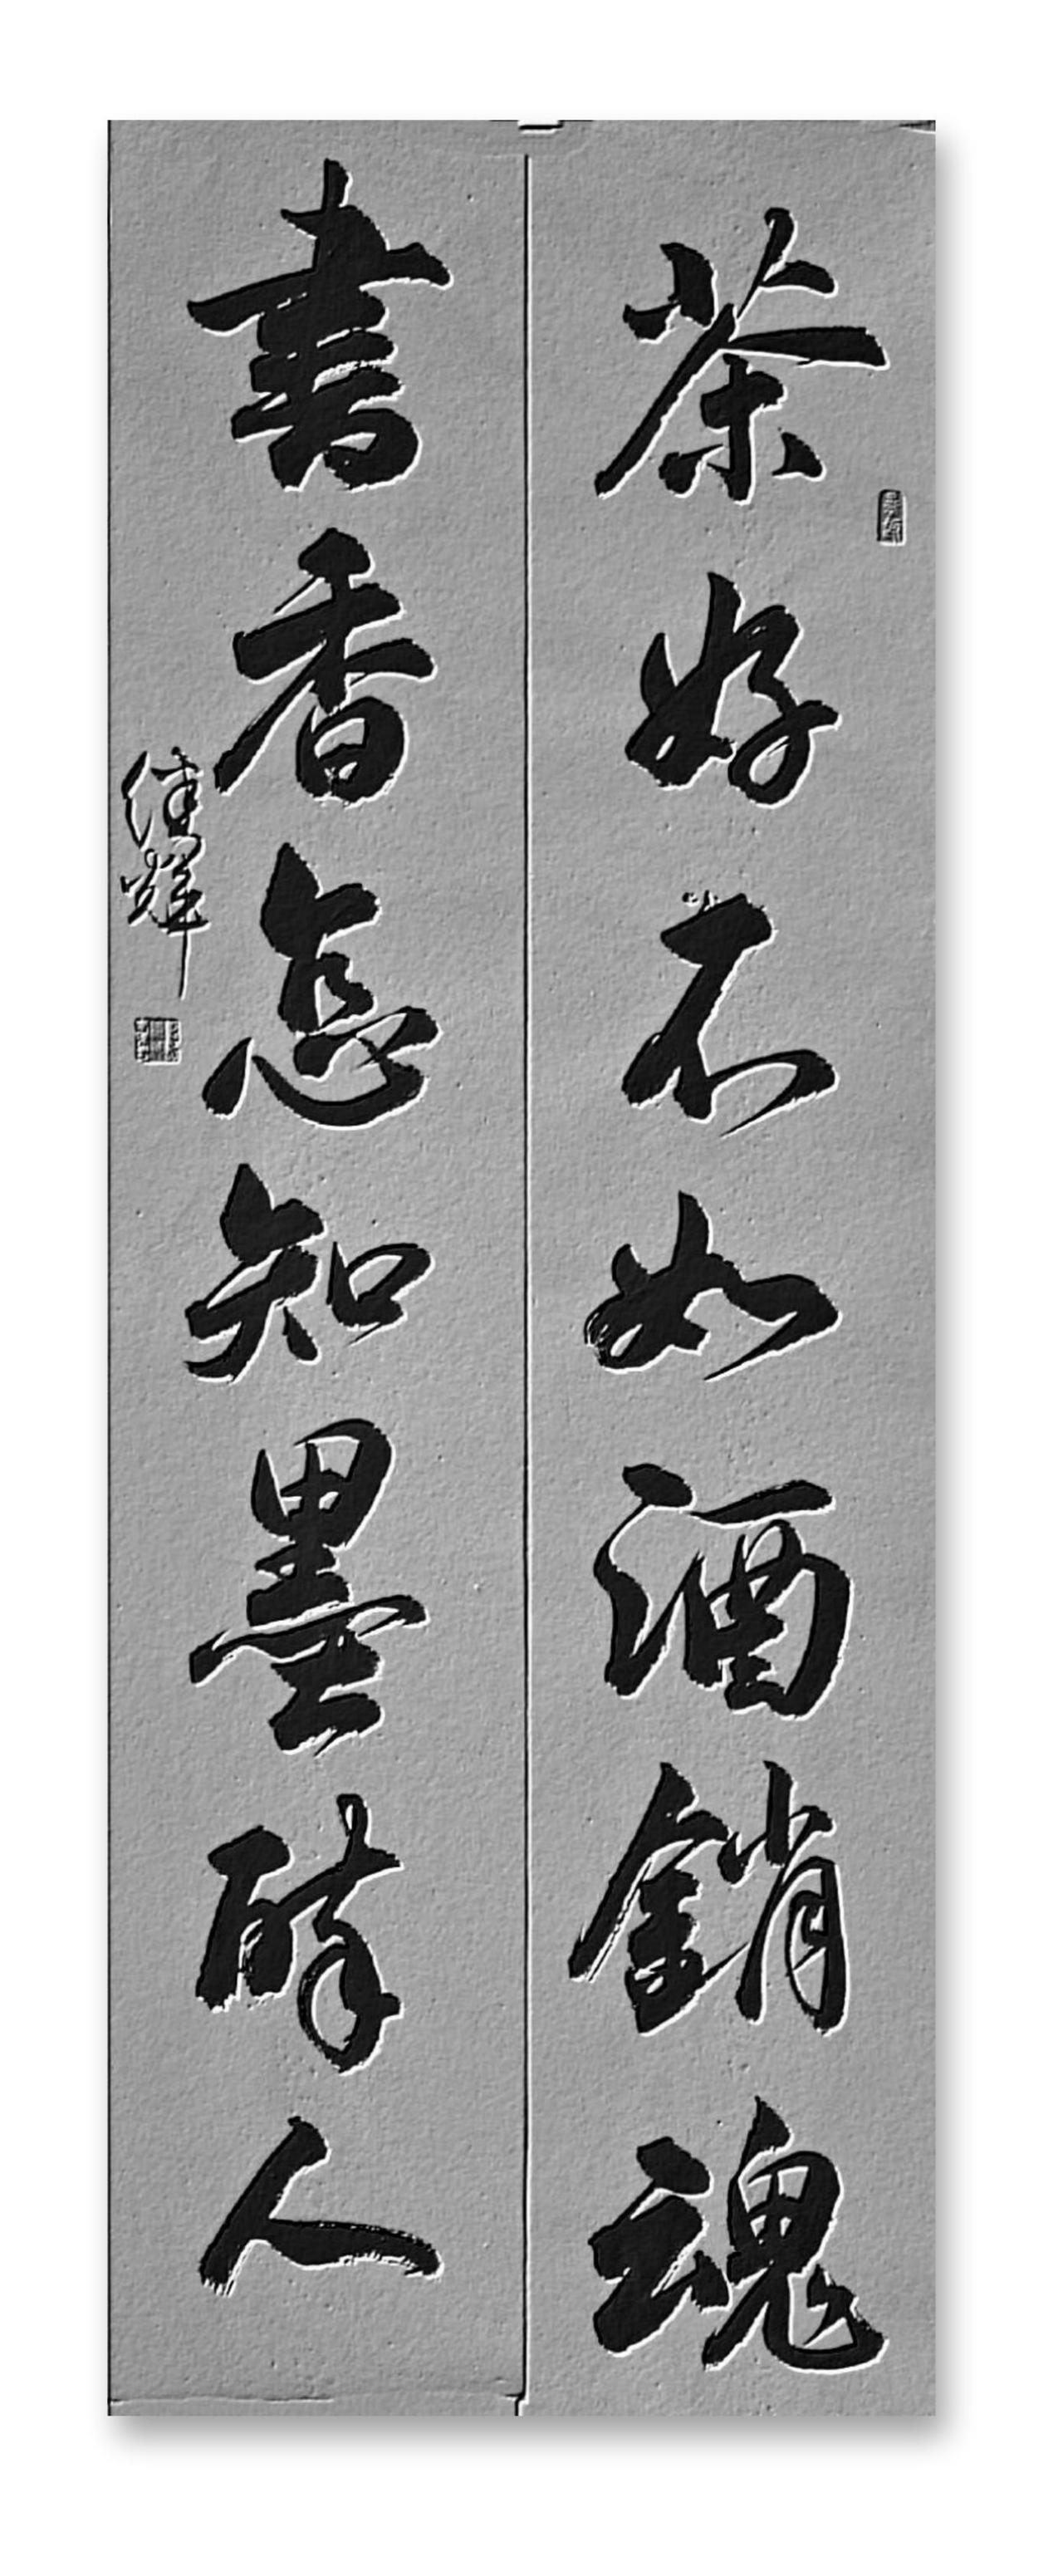 茶好不如酒銷魂
書香怎知墨醉人
佳輝